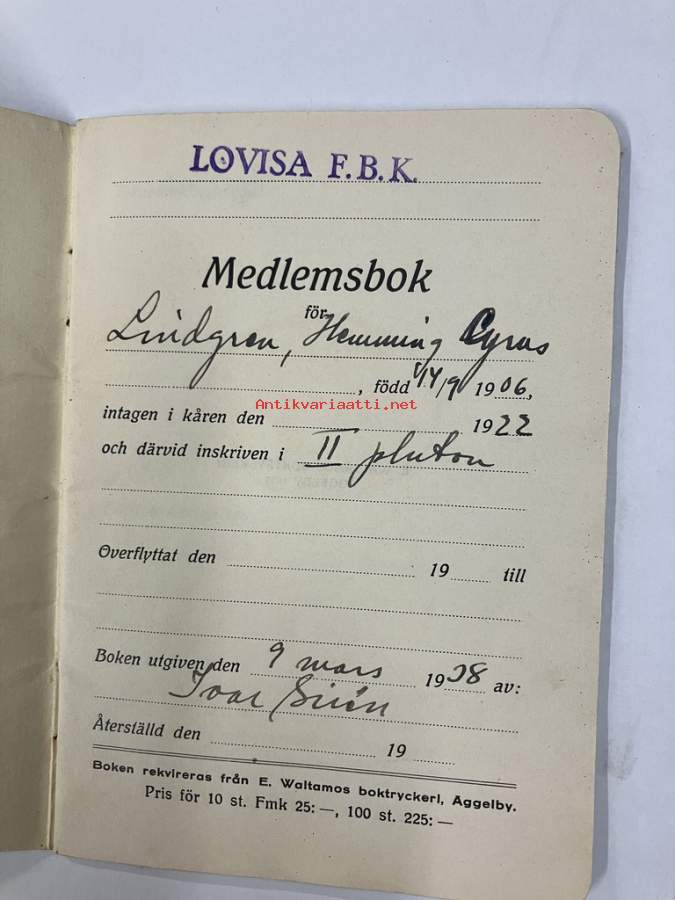 LOVISA F.B.K.
Medlemsbok
för
Lindgren, Hemming Cyrus
, född 14/9 1906,
Antikvariaatti.net
intagen i kåren den 1922
och därvid inskriven i II pluton
Överflyttat den 19 till
Boken utgiven den 9 mars 1938 av:
Ivar Sirén
Återställd den 19
Boken rekvireras från E. Waltamos boktryckeri, Åggelby.
Pris för 10 st. Fmk 25: —, 100 st. 225: —